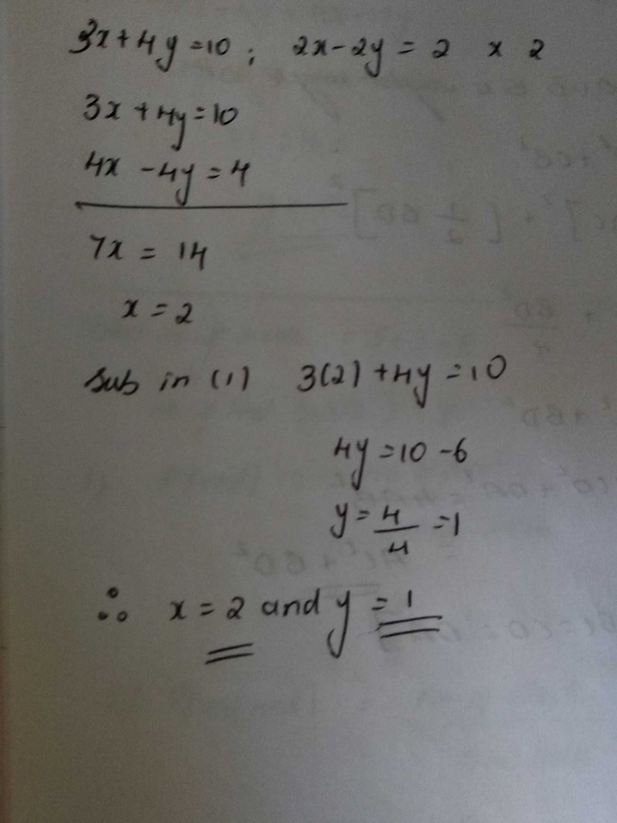 3x + 4y = 10 ; 2x - 2y = 2 x 2
3x + 4y = 10
4x - 4y = 4
7x = 14
x = 2
sub in (1) 3(2) + 4y = 10
4y = 10 - 6
y = 4/4 = 1
∴ x = 2 and y = 1